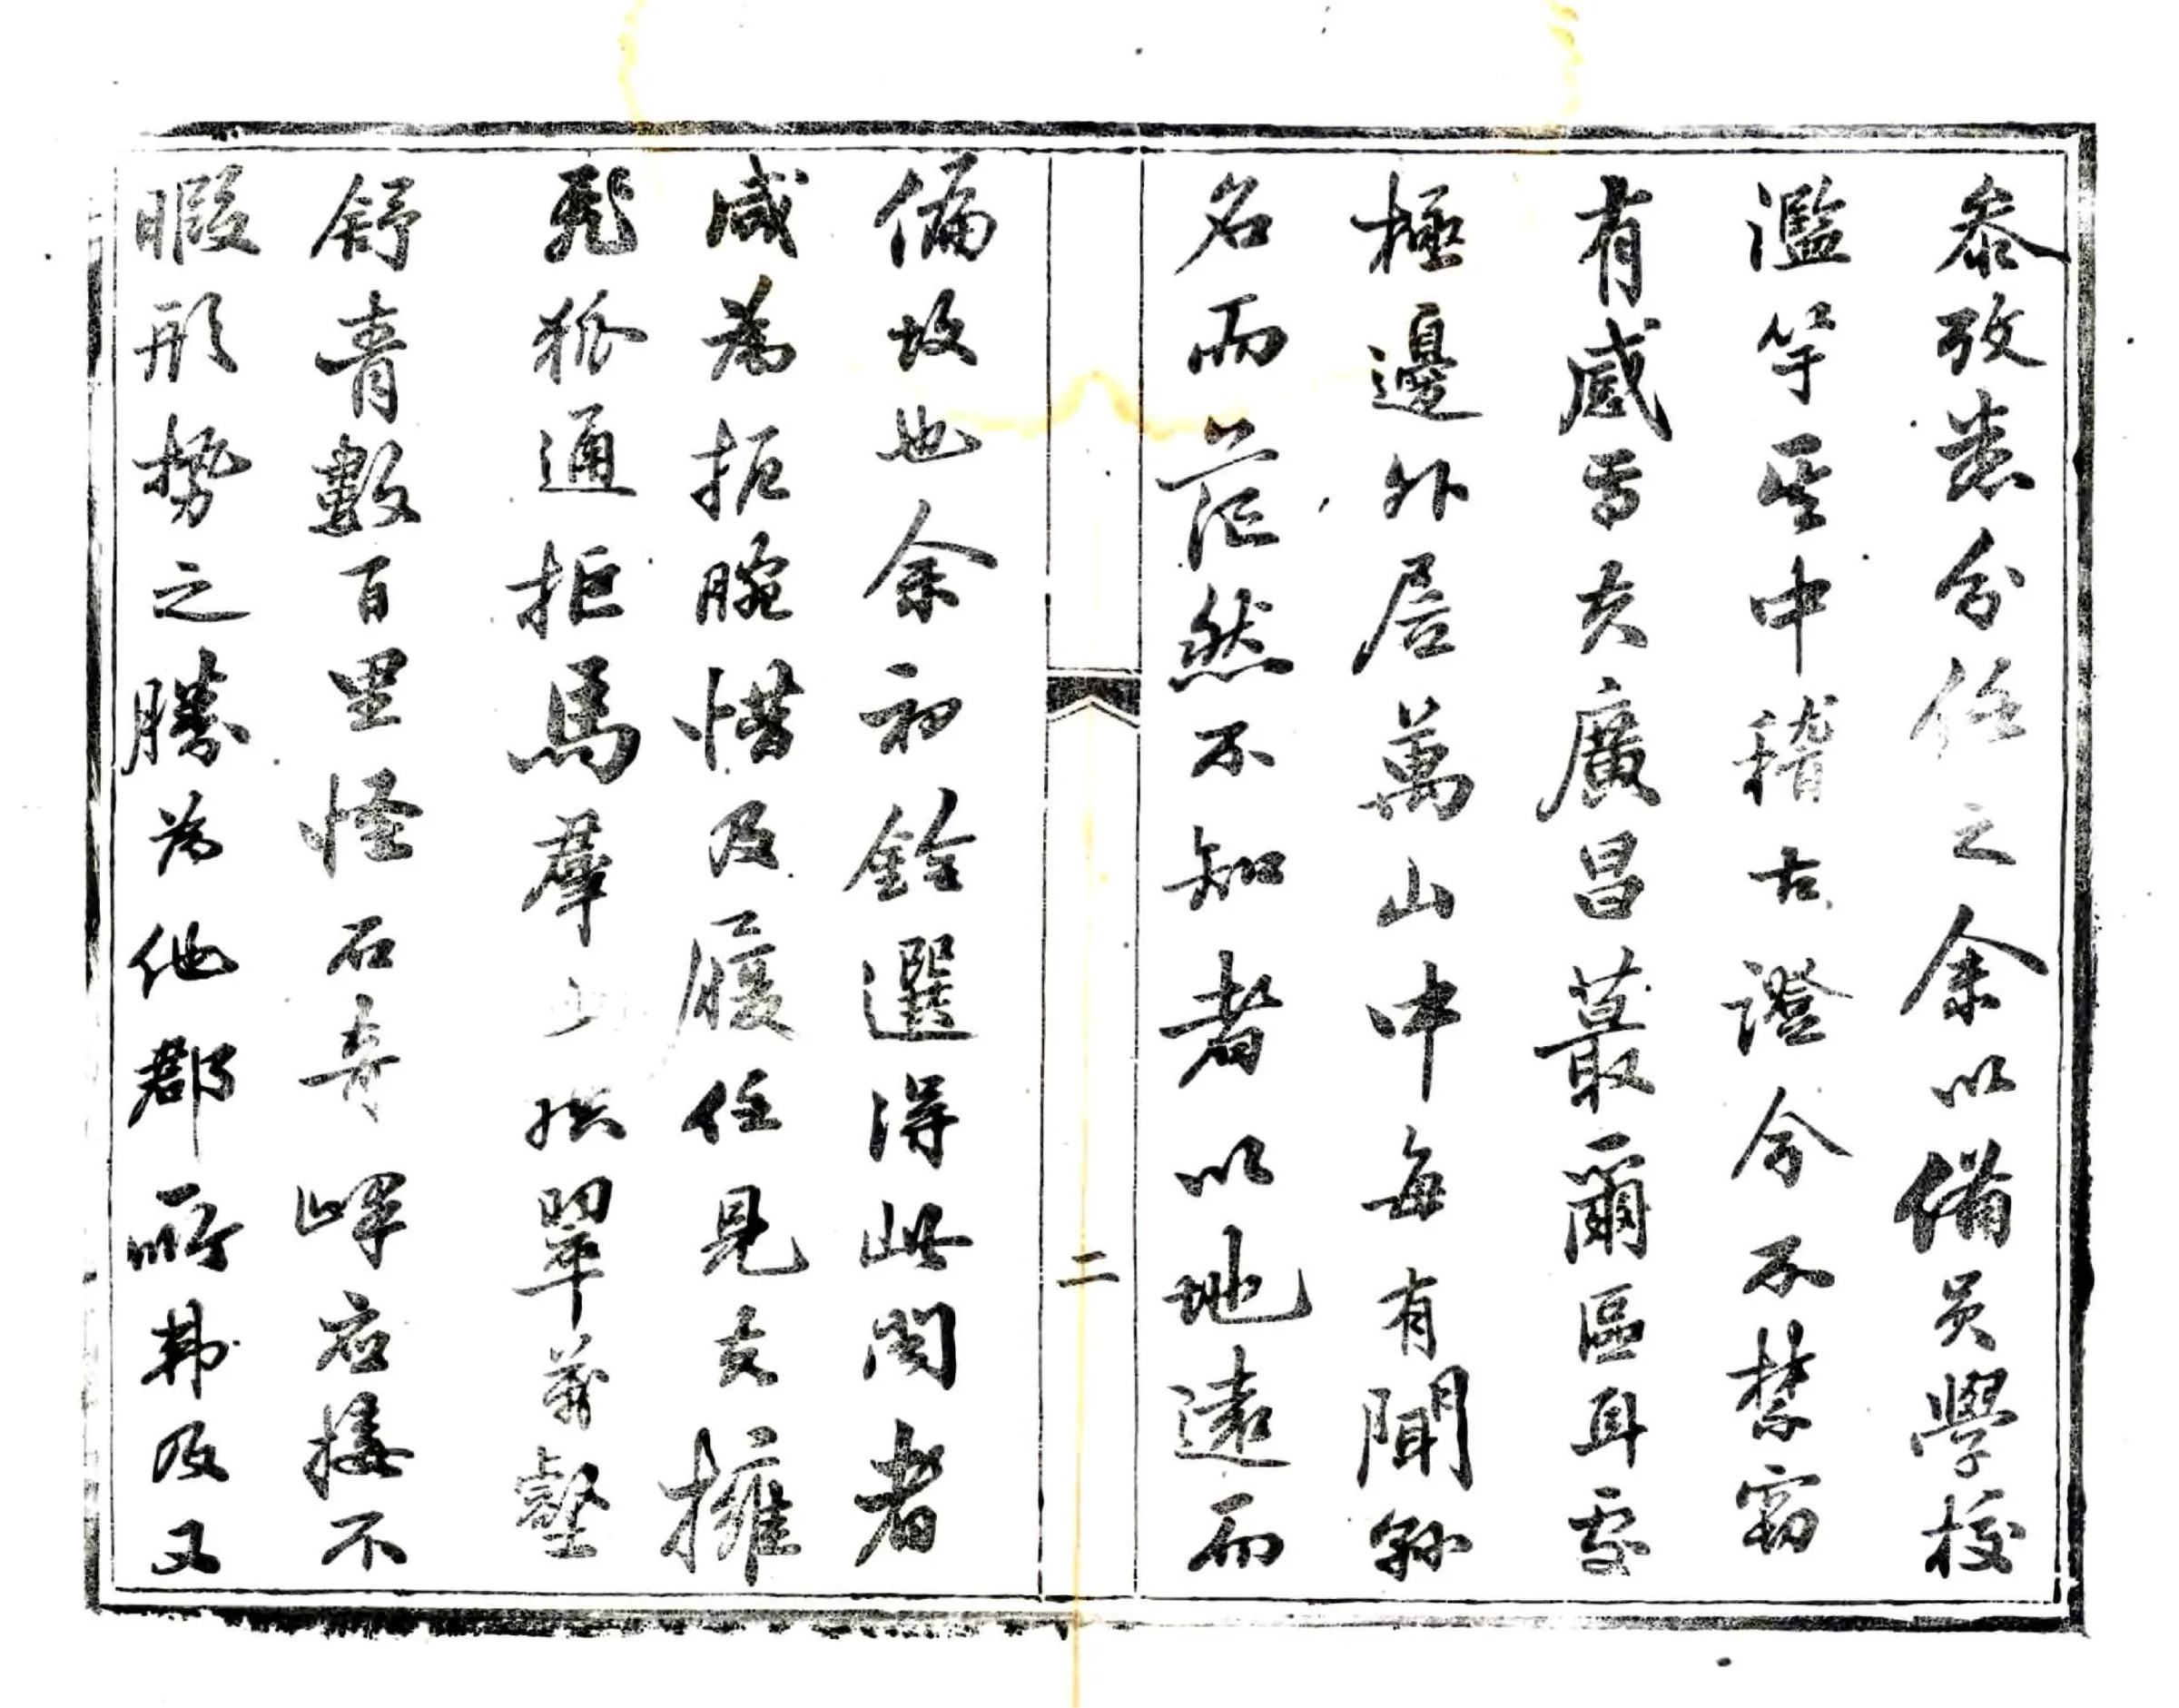 叅攷悉分任之余以備員學校
濫竽其中稽古證今不禁竊
有感焉夫廣昌蕞爾區耳處
極邊外居萬山中每有聞縣
名而茫然不知者以地遠而
二
偏故也余初銓選得此聞者
咸為扼腕惜及履任見夫擁
飛狐通拒馬羣山拱翠萬壑
舒青數百里怪石奇峄应接不
暇形势之勝為他郡所弗及又